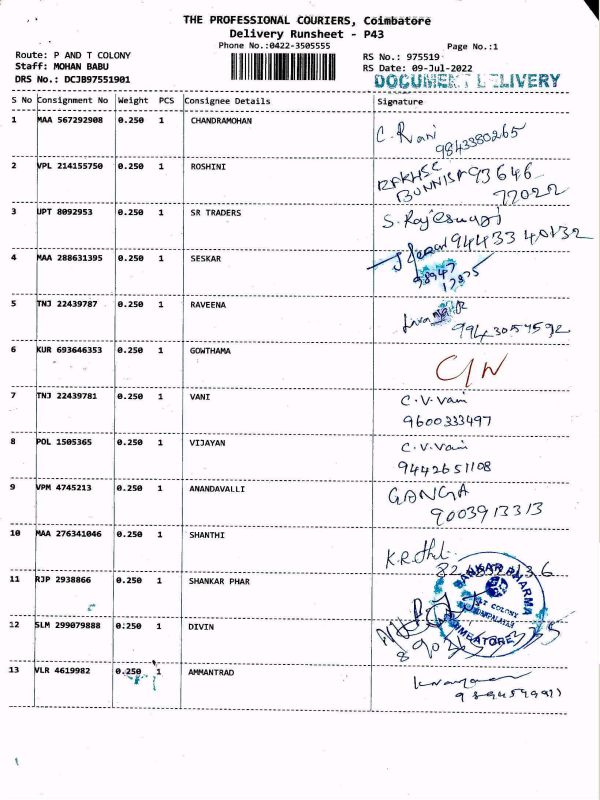 THE PROFESSIONAL COURIERS, Coimbatore
Delivery Runsheet - P43
Phone No.:0422-3505555
Page No.:1
Route: P AND T COLONY
RS No.: 975519
Staff: MOHAN BABU
RS Date: 09-Jul-2022
DRS No.: DCJB97551901
DOCUMENT DELIVERY
S No Consignment No Weight PCS Consignee Details Signature
1 MAA 567292908 0.250 1 CHANDRAMOHAN
C. Rani
9843380265
2 VPL 214155750 0.250 1 ROSHINI
BUNNISA 93646
77022
3 UPT 8092953 0.250 1 SR TRADERS
S. Rajeswari
9443340132
4 MAA 288631395 0.250 1 SESKAR
98947
17875
5 TNJ 22439787 0.250 1 RAVEENA
9943057592
6 KUR 693646353 0.250 1 GOWTHAMA
C/N
7 TNJ 22439781 0.250 1 VANI
C.V.Vani
9600333497
8 POL 1505365 0.250 1 VIJAYAN
C.V.Vani
9442651108
9 VPM 4745213 0.250 1 ANANDAVALLI
GANGA
9003913313
10 MAA 276341046 0.250 1 SHANTHI
K.R.
11 RJP 2938866 0.250 1 SHANKAR PHAR
SANKAR PHARMA
P&T COLONY
COIMBATORE
12 SLM 299079888 0.250 1 DIVIN
13 VLR 4619982 0.250 1 AMMANTRAD